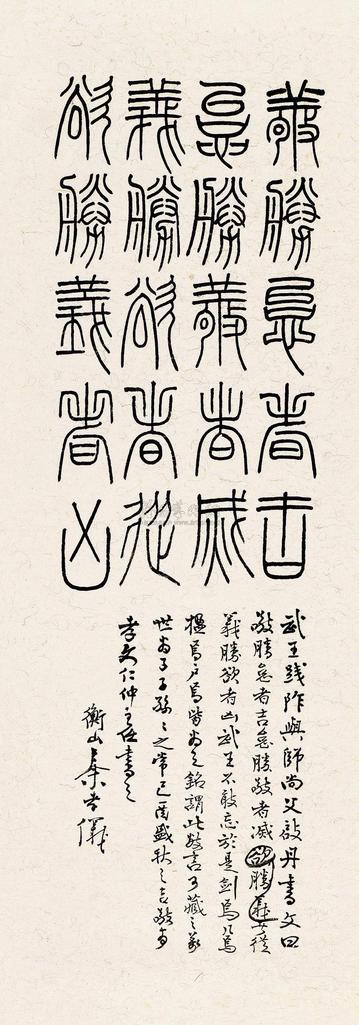 敬勝怠者吉
怠勝敬者滅
義勝欲者從
欲勝義者凶
武王踐阼與師尚父敬丹書文曰
敬勝怠者吉怠勝敬者滅欲勝義者從
義勝欲者凶武王不敢忘於是劍焉几焉
楹焉戶焉皆為之銘謂此數言可藏之
世為子子孫之常己酉盛秋之吉敬為
孝文仁仲書之
衡山秦